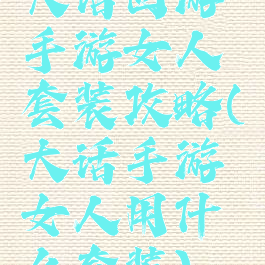 大话西游
手游女人
套装攻略(
大话手游
女人用什
么套装)